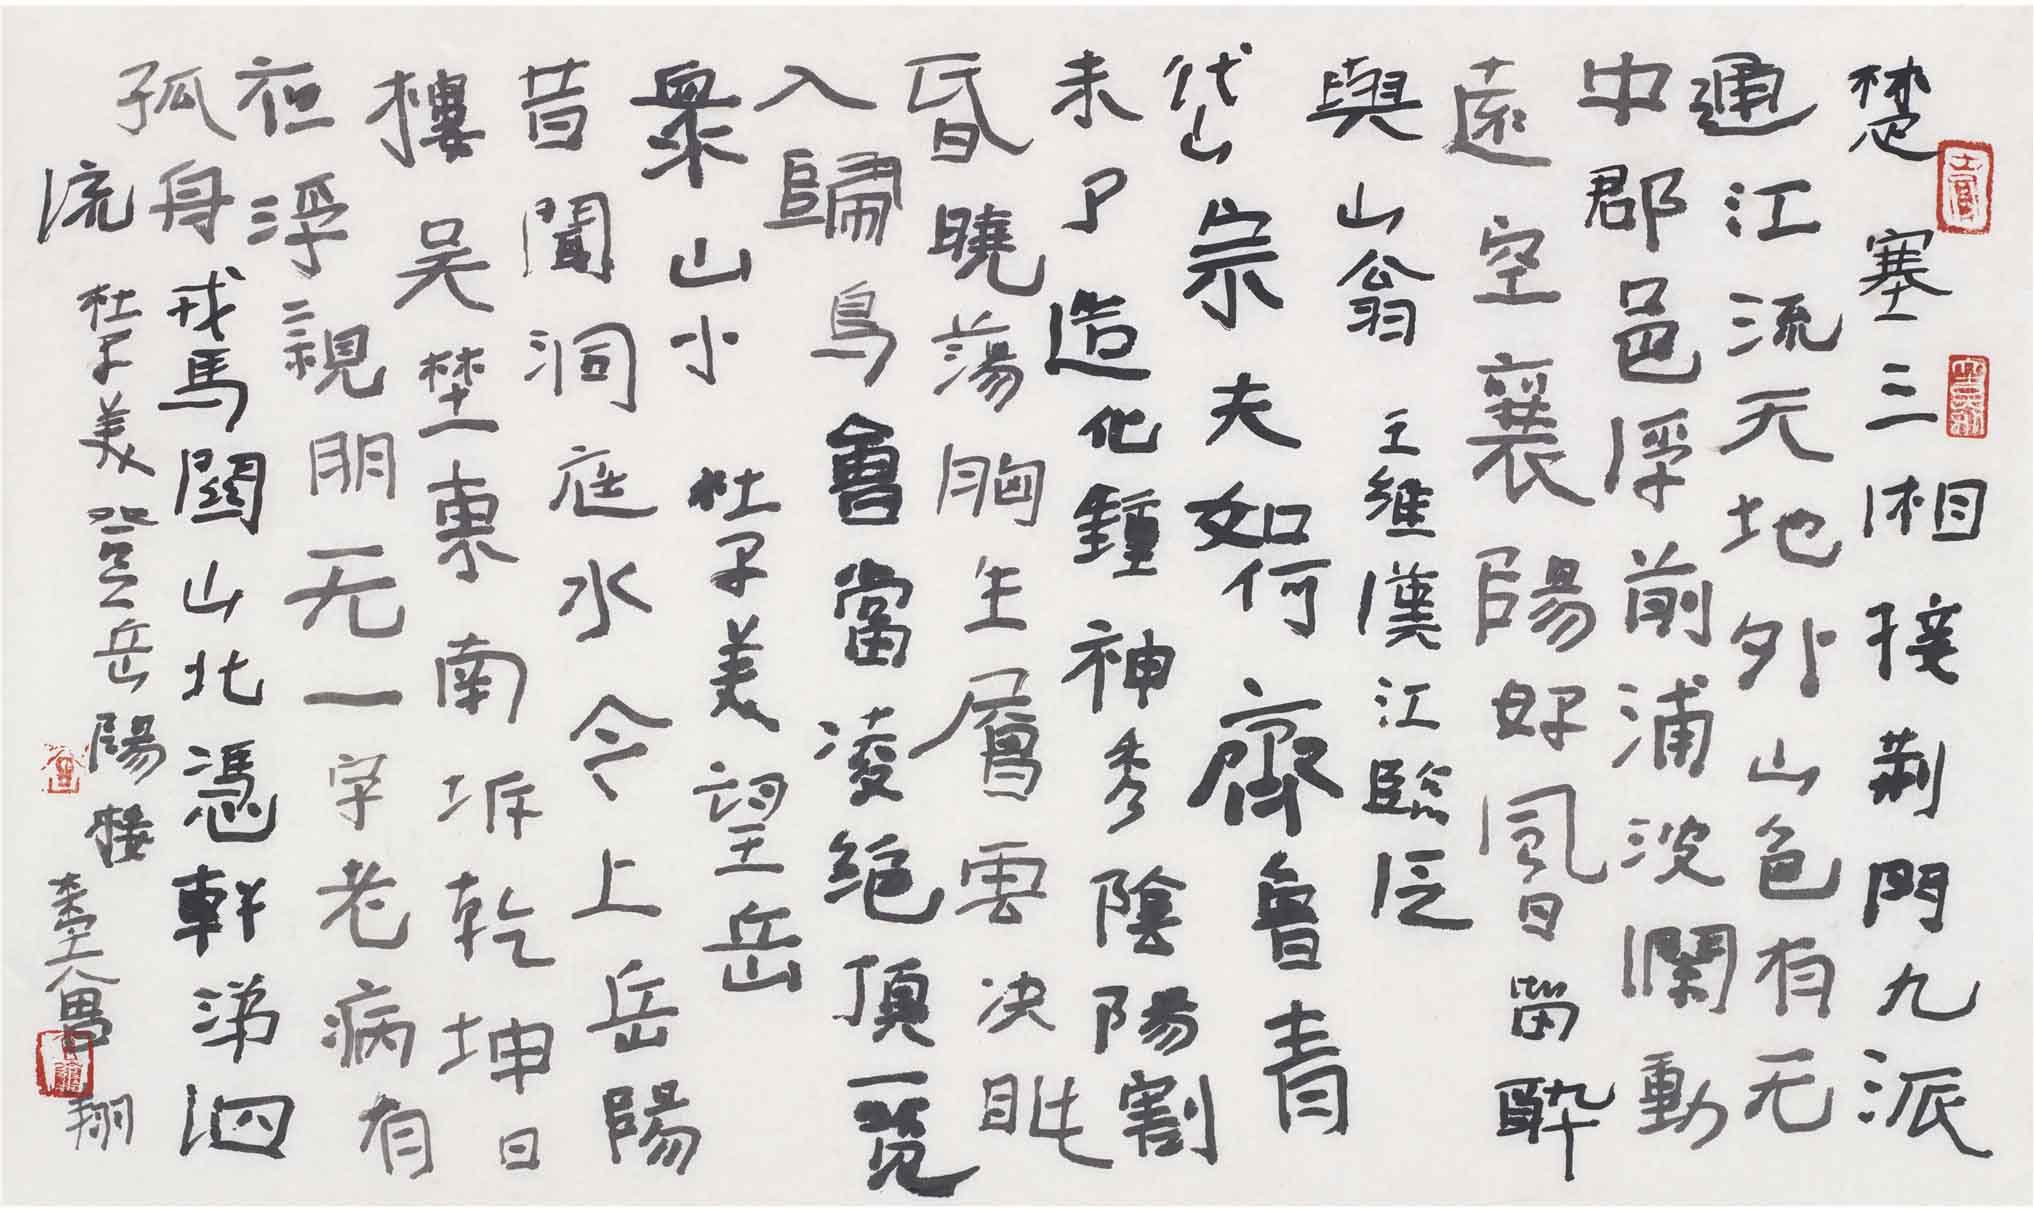 楚塞三湘接荆門九派
通江流天地外山色有无
中郡邑浮前浦波瀾動
遠空襄陽好風日留醉
與山翁 王維漢江臨泛
岱宗夫如何齊魯青
未了造化鍾神秀陰陽割
昏曉蕩胸生層雲决眦
入歸鳥會當凌絕頂一览
衆山小 杜子美望岳
昔聞洞庭水今上岳陽
樓吴楚東南坼乾坤日
夜浮親朋无一字老病有
孤舟戎馬關山北憑軒涕泗
流 杜子美登岳陽樓
翔